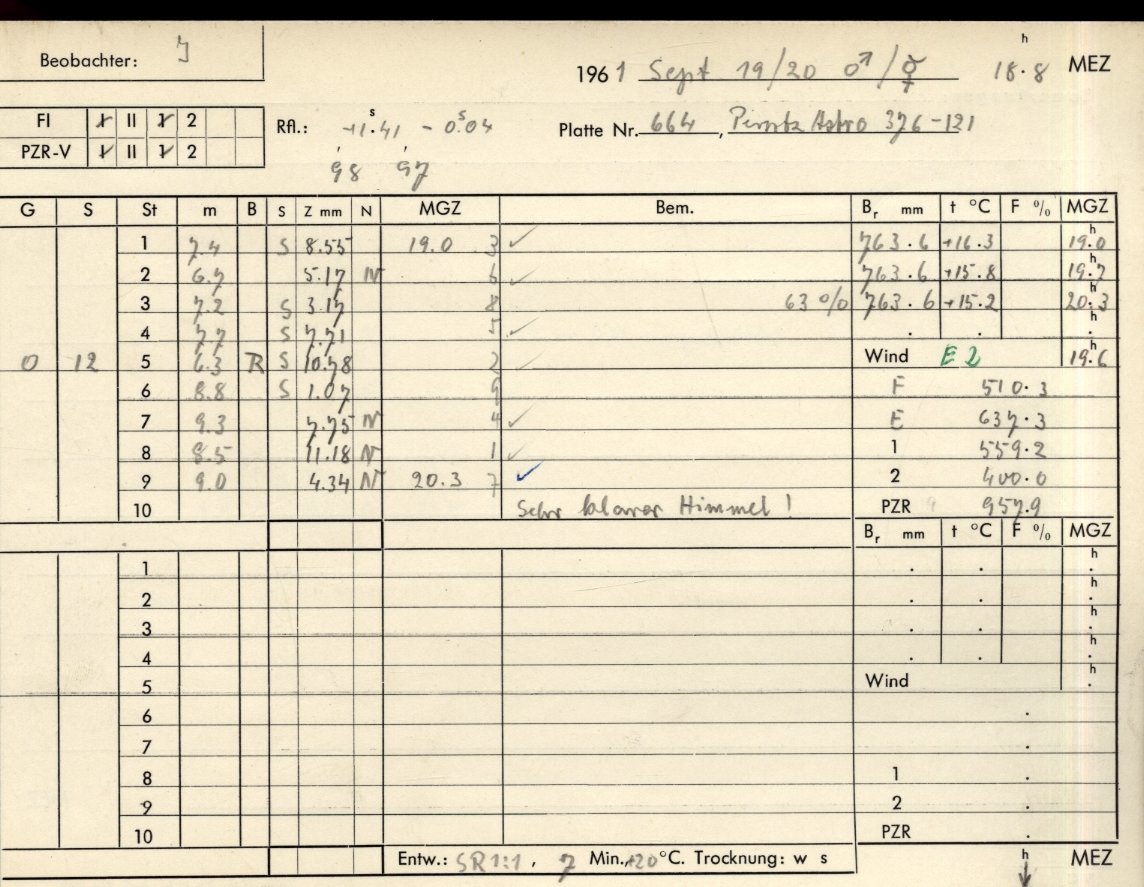 h
Beobachter: J 1961 Sept 19/20 ♂/☿ 18.8 MEZ
FI I II 1 2 Rfl.: -11.41 - 0.04 Platte Nr. 664, Astro 376-121
PZR-V I II 1 2 98 97
G S St m B S Z mm N MGZ Bem. Br mm t °C F % MGZ
1 7.4 S 8.55 19.0 3 ✓ 763.6 +16.3 19.0
2 6.7 5.17 N 6 ✓ 763.6 +15.8 19.7
3 7.2 S 3.17 8 63 % 763.6 +15.2 20.3
4 7.7 S 7.71 5 ✓
0 12 5 6.3 R S 10.78 2 ✓ Wind E 2 19.6
6 8.8 S 1.07 9 F 510.3
7 9.3 7.75 N 4 ✓ E 637.3
8 8.5 11.18 N 1 ✓ 1 559.2
9 9.0 4.34 N 20.3 7 ✓ 2 400.0
10 Sehr blauer Himmel! PZR 957.9
Br mm t °C F % MGZ
1 h
2 h
3 h
4 h
5 Wind h
6
7
8 1
9 2
10 PZR
Entw.: SR 1:1, 7 Min., +20 °C. Trocknung: w s h MEZ